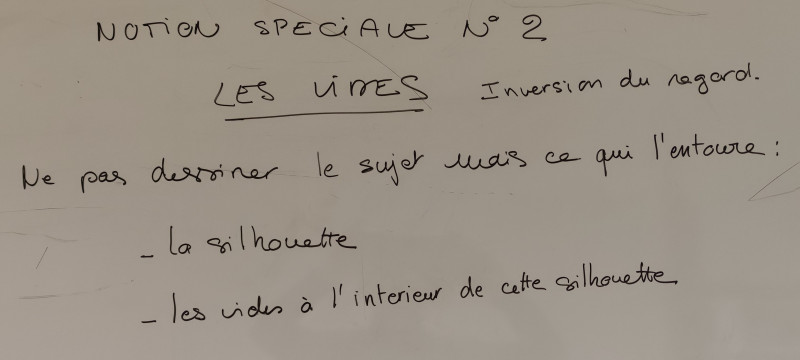 NOTION SPECIALE N° 2
LES VIDES Inversion du regard.
Ne pas dessiner le sujet mais ce qui l'entoure :
- la silhouette
- les vides à l'interieur de cette silhouette